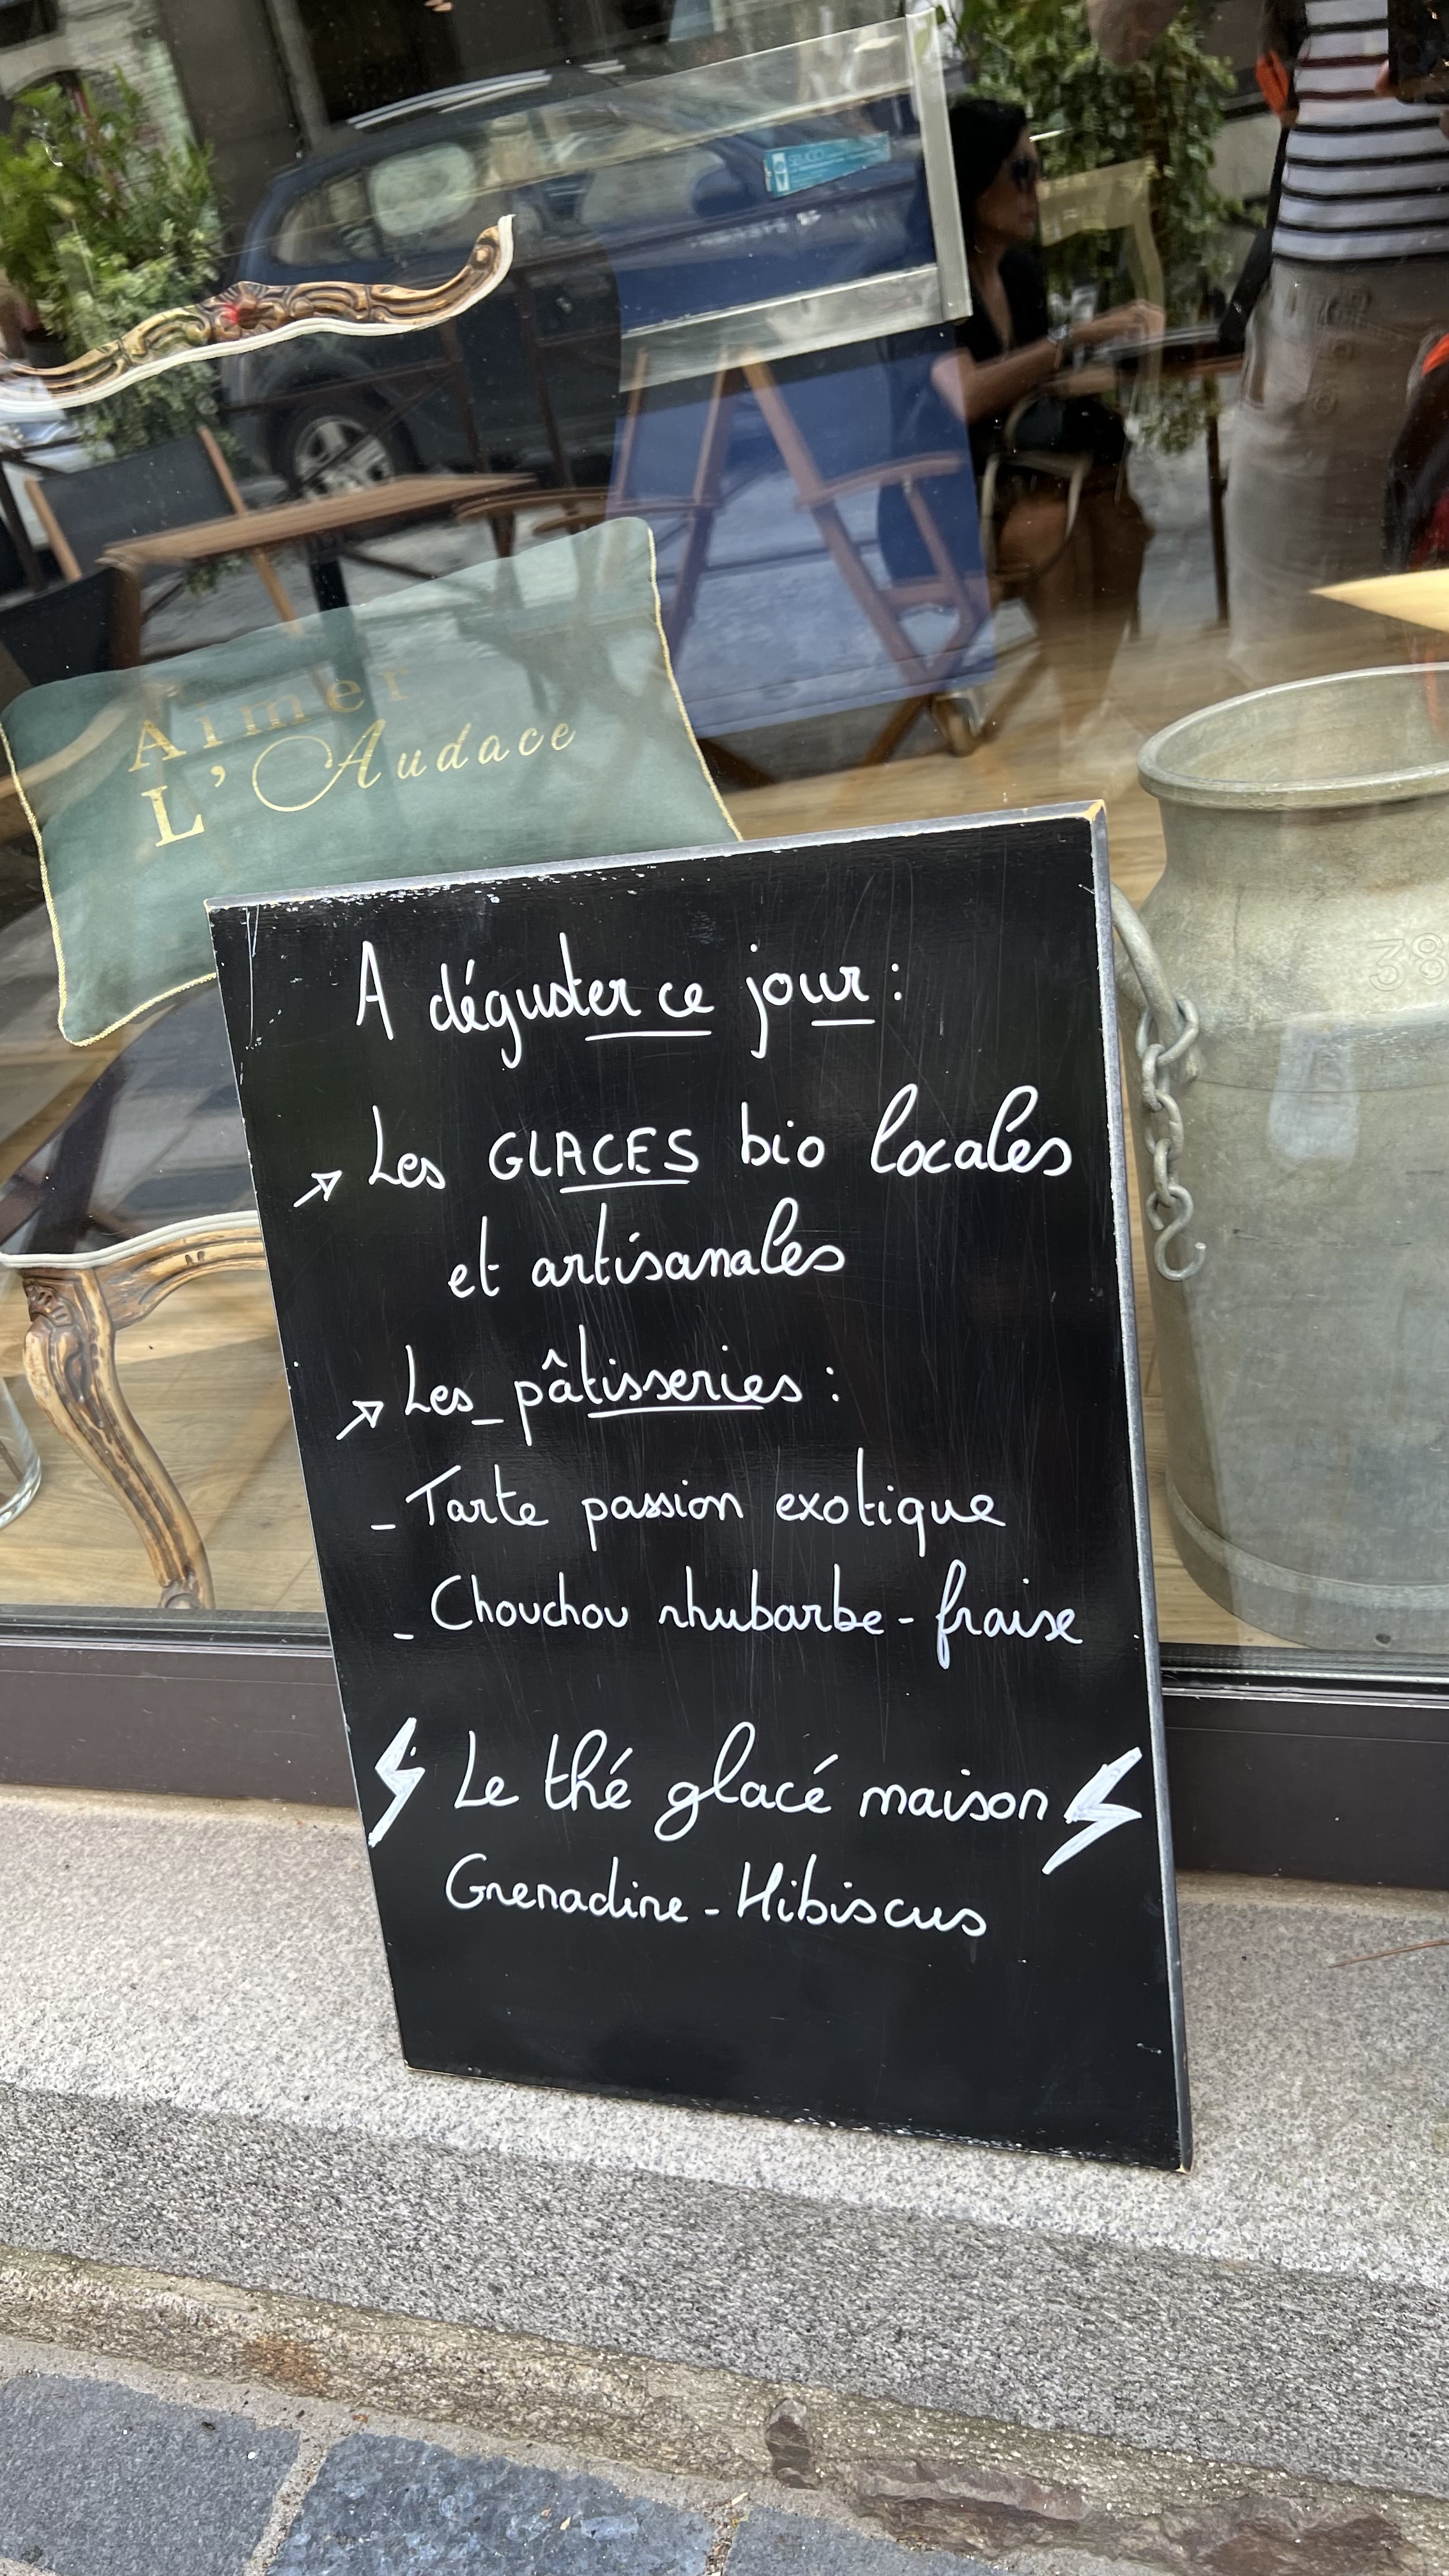 Aimer
L'Audace
38
A déguster ce jour :
Les GLACES bio locales
et artisanales
Les pâtisseries :
- Tarte passion exotique
- Chouchou rhubarbe - fraise
Le thé glacé maison
Grenadine - Hibiscus